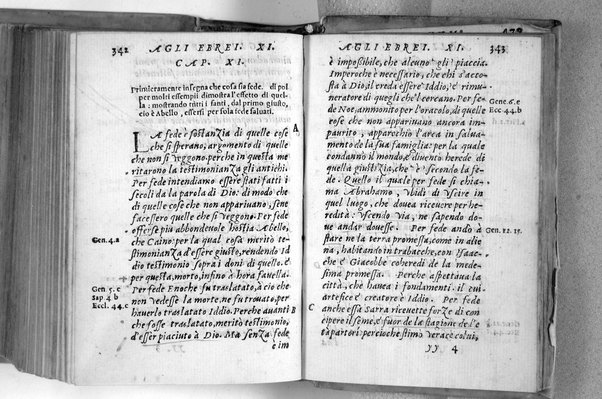 342 AGLI EBREI. XI.
CAP. XI.
Primieramente insegna che cosa sia fede. di poi
per molti essempii dimostra l'effetto di quel-
la: mostrando tutti i santi, dal primo giusto,
cio è Abello, essersi per sola fede saluati.
A
LA fede è sostanzia di quelle cose
che si sperano, argomento di quelle
che non si veggono. perche in questa me
ritarono la testimonianza gli antichi.
Per fede intendiamo essere stati fatti i
secoli da la parola di Dio: di modo che
di quelle cose che non appariuano, sene
facessero quelle che si veggono. Per fede
offerse piu abbondeuole hostia Abello,
Gen. 4. a
che Caino: per la qual cosa meritò te-
stimonianza d'essere giusto, rendendo Id
dio testimonio sopra i doni di quello. e
per questa, morto, infino à hora fauella.
Gen. 5. c
Sap 4 b
Eccl. 44. c
Per fede Enoche fu traslatato, à cio che
non vedesse la morte. ne fu trouato, per
hauerlo traslatato Iddio. Perche auanti
B
che fosse traslatato, meritò testimonio,
d'esser piaciuto à Dio. Ma senza fede
e im
AGLI EBREI. XI. 343
è impossibile, che alcuno gli piaccia.
Imperoche è necessario, che chi s'acco-
sta à Dio, il creda essere Iddio, e rimu-
neratore di quegli che'l cercano. Per fe-
Gene. 6. c
Eco 44. b
de Noe, ammonito per l'oracolo, di quelle
cose che non appariuano ancora im-
paurito, apparechio l'arca in salua-
mento de la sua famiglia: per la quale
condannò il mondo, e diuentò herede di
quella giustizia, che è secondo la fe-
de. Quello il quale per fede si chia-
ma Abrahamo, vbidi di vscire in
quel luogo, che douea riceuere per he-
redità: vscendo via, ne sapendo do-
ue andar douesse. Per fede andò à
Gen. 12. 15.
stare ne la terra promessa, come in alie
na, habitando in trabacche, con Isaac-
che e Giacobbe coheredi de la mede-
sima promessa. Perche aspettaua la
città, che hauea i fondamenti. il cui
artefice e creatore è Iddio. Per fede
C
anche essa Sarra riceuette forze di con
cipere il seme, e fuor de la stagione de l'e
tà partorì: percioche stimò verace colui,
II 4